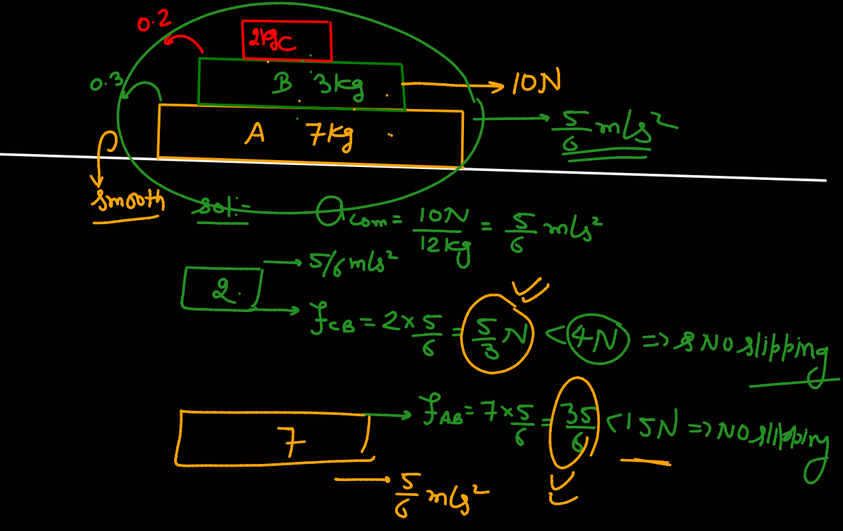 0.2
2kg C
0.3
B 3kg
10N
A 7kg
5/6 m/s²
smooth
sol:-
a com = 10N/12kg = 5/6 m/s²
5/6 m/s²
2
f CB = 2×5/6 = 5/3 N < 4N ⇒ No slipping
f AB = 7×5/6 = 35/6 < 15N ⇒ No slipping
7
5/6 m/s²